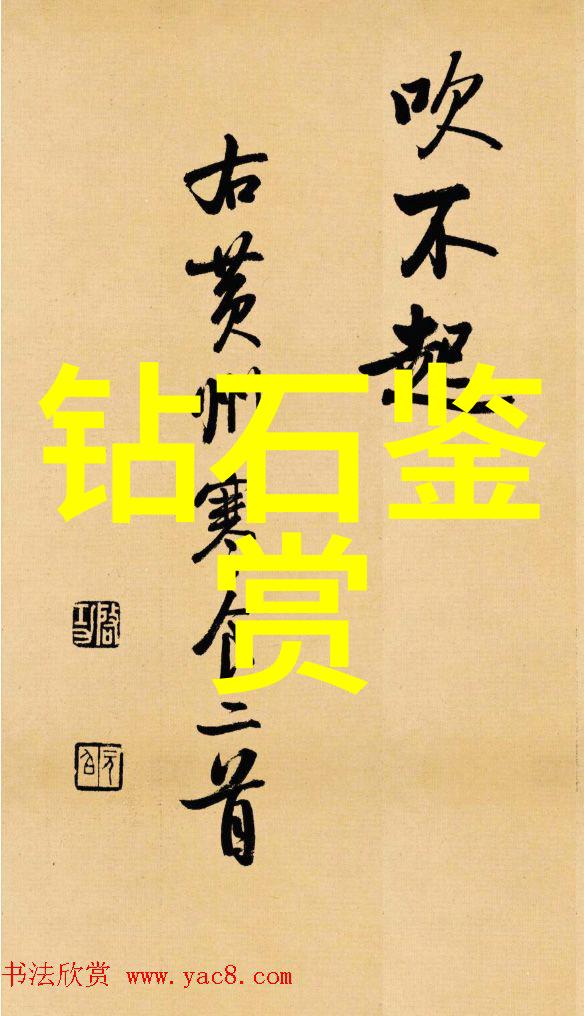 吹不起
右黄州寒食二首
钻石鉴
赏
启功
元白
书法欣赏 www.yac8.com